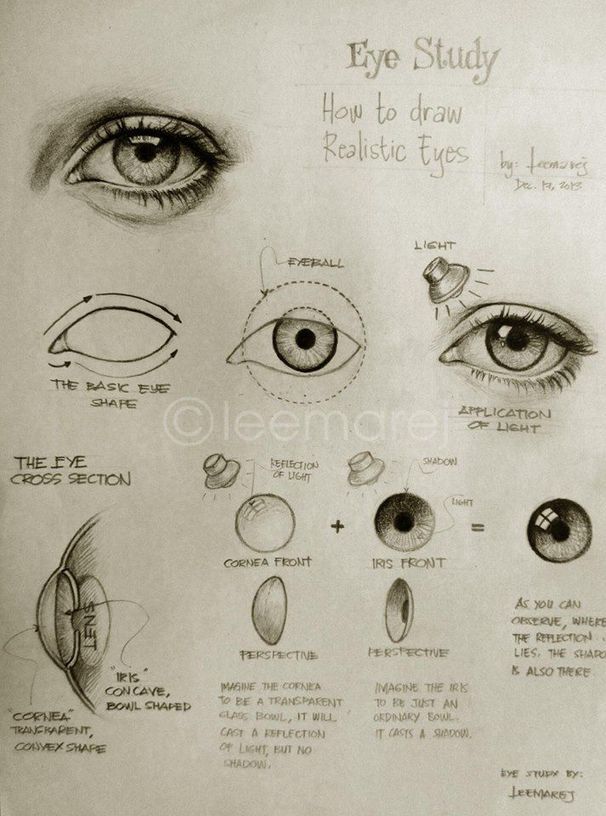 Eye Study
How to draw
Realistic Eyes
by: leemarej
Dec. 17, 2013
LIGHT
EYEBALL
THE BASIC EYE
SHAPE
APPLICATION
OF LIGHT
©leemarej
THE EYE
CROSS SECTION
REFLECTION
OF LIGHT
SHADOW
LIGHT
+
=
CORNEA FRONT
IRIS FRONT
PERSPECTIVE
PERSPECTIVE
LENS
"IRIS"
CONCAVE,
BOWL SHAPED
"CORNEA"
TRANSPARENT,
CONVEX SHAPE
IMAGINE THE CORNEA
TO BE A TRANSPARENT
GLASS BOWL, IT WILL
CAST A REFLECTION
OF LIGHT, BUT NO
SHADOW.
IMAGINE THE IRIS
TO BE JUST AN
ORDINARY BOWL.
IT CASTS A SHADOW.
AS YOU CAN
OBSERVE, WHERE
THE REFLECTION
LIES. THE SHADO
IS ALSO THERE.
EYE STUDY BY:
LEEMAREJ